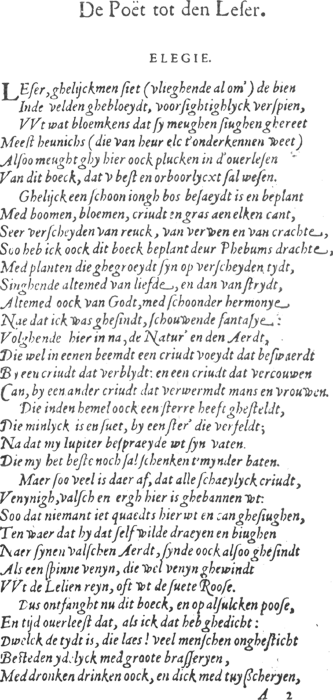 De Poët tot den Leser.
ELEGIE.
LEser, ghelijckmen siet (vlieghende al om') de bien
Inde velden ghebloeydt, voorsightighlyck verspien,
VVt wat bloemkens dat sy meughen suighen ghereet
Meest heunichs (die van heur elc t'onderkennen weet)
Alsoo meught ghy hier oock plucken in d'ouerlesen
Van dit boeck, dat v best en orboorlycxt sal wesen.
Ghelijck een schoon iongh bos besaeydt is en beplant
Med boomen, bloemen, criudt en gras aen elken cant,
Seer verscheyden van reuck, van verwen en van crachte,
Soo heb ick oock dit boeck beplant deur Phebums drachte,
Med planten die ghegroeydt syn op verscheyden tydt,
Singhende altemed van liefde, en dan van strydt,
Altemed oock van Godt, med schoonder hermonye
Nae dat ick was ghesindt, schouwende fantasye:
Volghende hier in na, de Natur' en den Aerdt,
Die wel in eenen beemdt een criudt voeydt dat beswaerdt
By een criudt dat verblydt: en een criudt dat vercouwen
Can, by een ander criudt dat verwermdt mans en vrouwen.
Die inden hemel oock een sterre heeft ghesteldt,
Die minlyck is en suet, by een ster' die verseldt;
Na dat my Iupiter bespraeyde wt syn vaten.
Die my het beste noch sal schenken t'mynder baten.
Maer soo veel is daer af, dat alle schaeylyck criudt,
Venynigh, valsch en ergh hier is ghebannen wt:
Soo dat niemant iet quaedts hier wt en can ghesiughen,
Ten waer dat hy dat self wilde draeyen en biughen
Naer synen valschen Aerdt, synde oock alsoo ghesindt
Als een spinne venyn, die wel venyn ghewindt
VVt de Lelien reyn, oft wt de suete Roose.
Dus ontfanght nu dit boeck, en op alsulcken poose,
En tijd ouerleest dat, als ick dat heb ghedicht:
Dwelck de tydt is, die laes! veel menschen onghesticht
Besteden ydelyck med groote brasseryen,
Med dronken drinken oock, en dick med tuysscheryen,
A 2